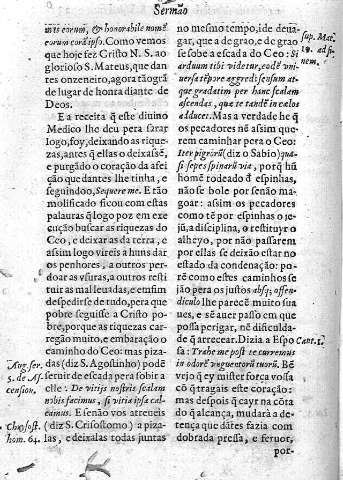 Sermão
nis eorum, & honorabile nomē
eorum corā ipso. Como vemos
que hoje fez Christo N. S. ao
glorioso S. Mateus, que dan
tes onzeneiro, agora tão grā
de lugar de honra diante de
Deos.
E a receita q̃ este diuino
Medico lhe deu pera sarar
logo, foy, deixando as rique-
zas, antes q̃ ellas o deixassē,
e purgādo o coração da afei
ção que dantes lhe tinha, e
seguindoo, Sequere me. E tão
molificado ficou com estas
palauras q̃ logo poz em exe
cução buscar as riquezas do
Ceo, e deixar as da terra, e
assim logo vireis a huns dar
os penhores, a outros per-
doar as vsuras, a outros resti
tuir as mal leuadas, e em fim
despedirse de tudo, pera que
pobre seguisse a Cristo po
bre, porque as riquezas car-
regão muito, e embaração o
caminho do Ceo: mas piza-
Aug. ser. das (diz S. Agostinho) podē
5. de As seruir de escada pera sobir a
cension. elle: De vitijs nostris scalam
nobis facimus, si vitia ipsa cal-
camus. E se não vos atreueis
Chrisost. (diz S. Crisostomo) a piza-
hom. 64. las, e deixalas todas juntas
no mesmo tempo, ide deua-
gar, que a de grao, e de grao
se sobe a escada do Ceo: Si
arduum tibi videtur, eodē vni-
uersa tēpore aggredi: sensum at-
que gradatim per hanc scalam
ascendas, que te tandē in cælos
adducet. Mas a verdade he q̃
os pecadores nē assim que-
rem caminhar pera o Ceo:
Iter pigrorū (diz o Sabio) qua-
si sepes spinarū via, porq̃ hū
homē rodeado d̃ espinhas,
não se bole por se não ma-
goar: assim os pecadores
como tē por espinhas o je-
jū, a disciplina, o restituyr o
alheyo, por não passarem
por ellas se deixão estar no
estado da condenação: po-
rē como estes caminhos se
jão pera os justos absq; offen-
diculo lhe parecē muito sua
ues, e sē auer passo em que
possa perigar, nē dificulda-
de q̃ arrecear. Dizia a Espo Cant. 1.
sa: Trahe me post te curremus
in odorē vnguentorū tuorū. Bē
vejo q̃ ey mister força vossa
cō q̃ tragais este coração:
mas despois q̃ cayr na cōta
do q̃ alcança, mudará a de-
tença que dātes fazia com
dobrada pressa, e feruor,
por-
sup. Mat.
19. ad fi
nem.